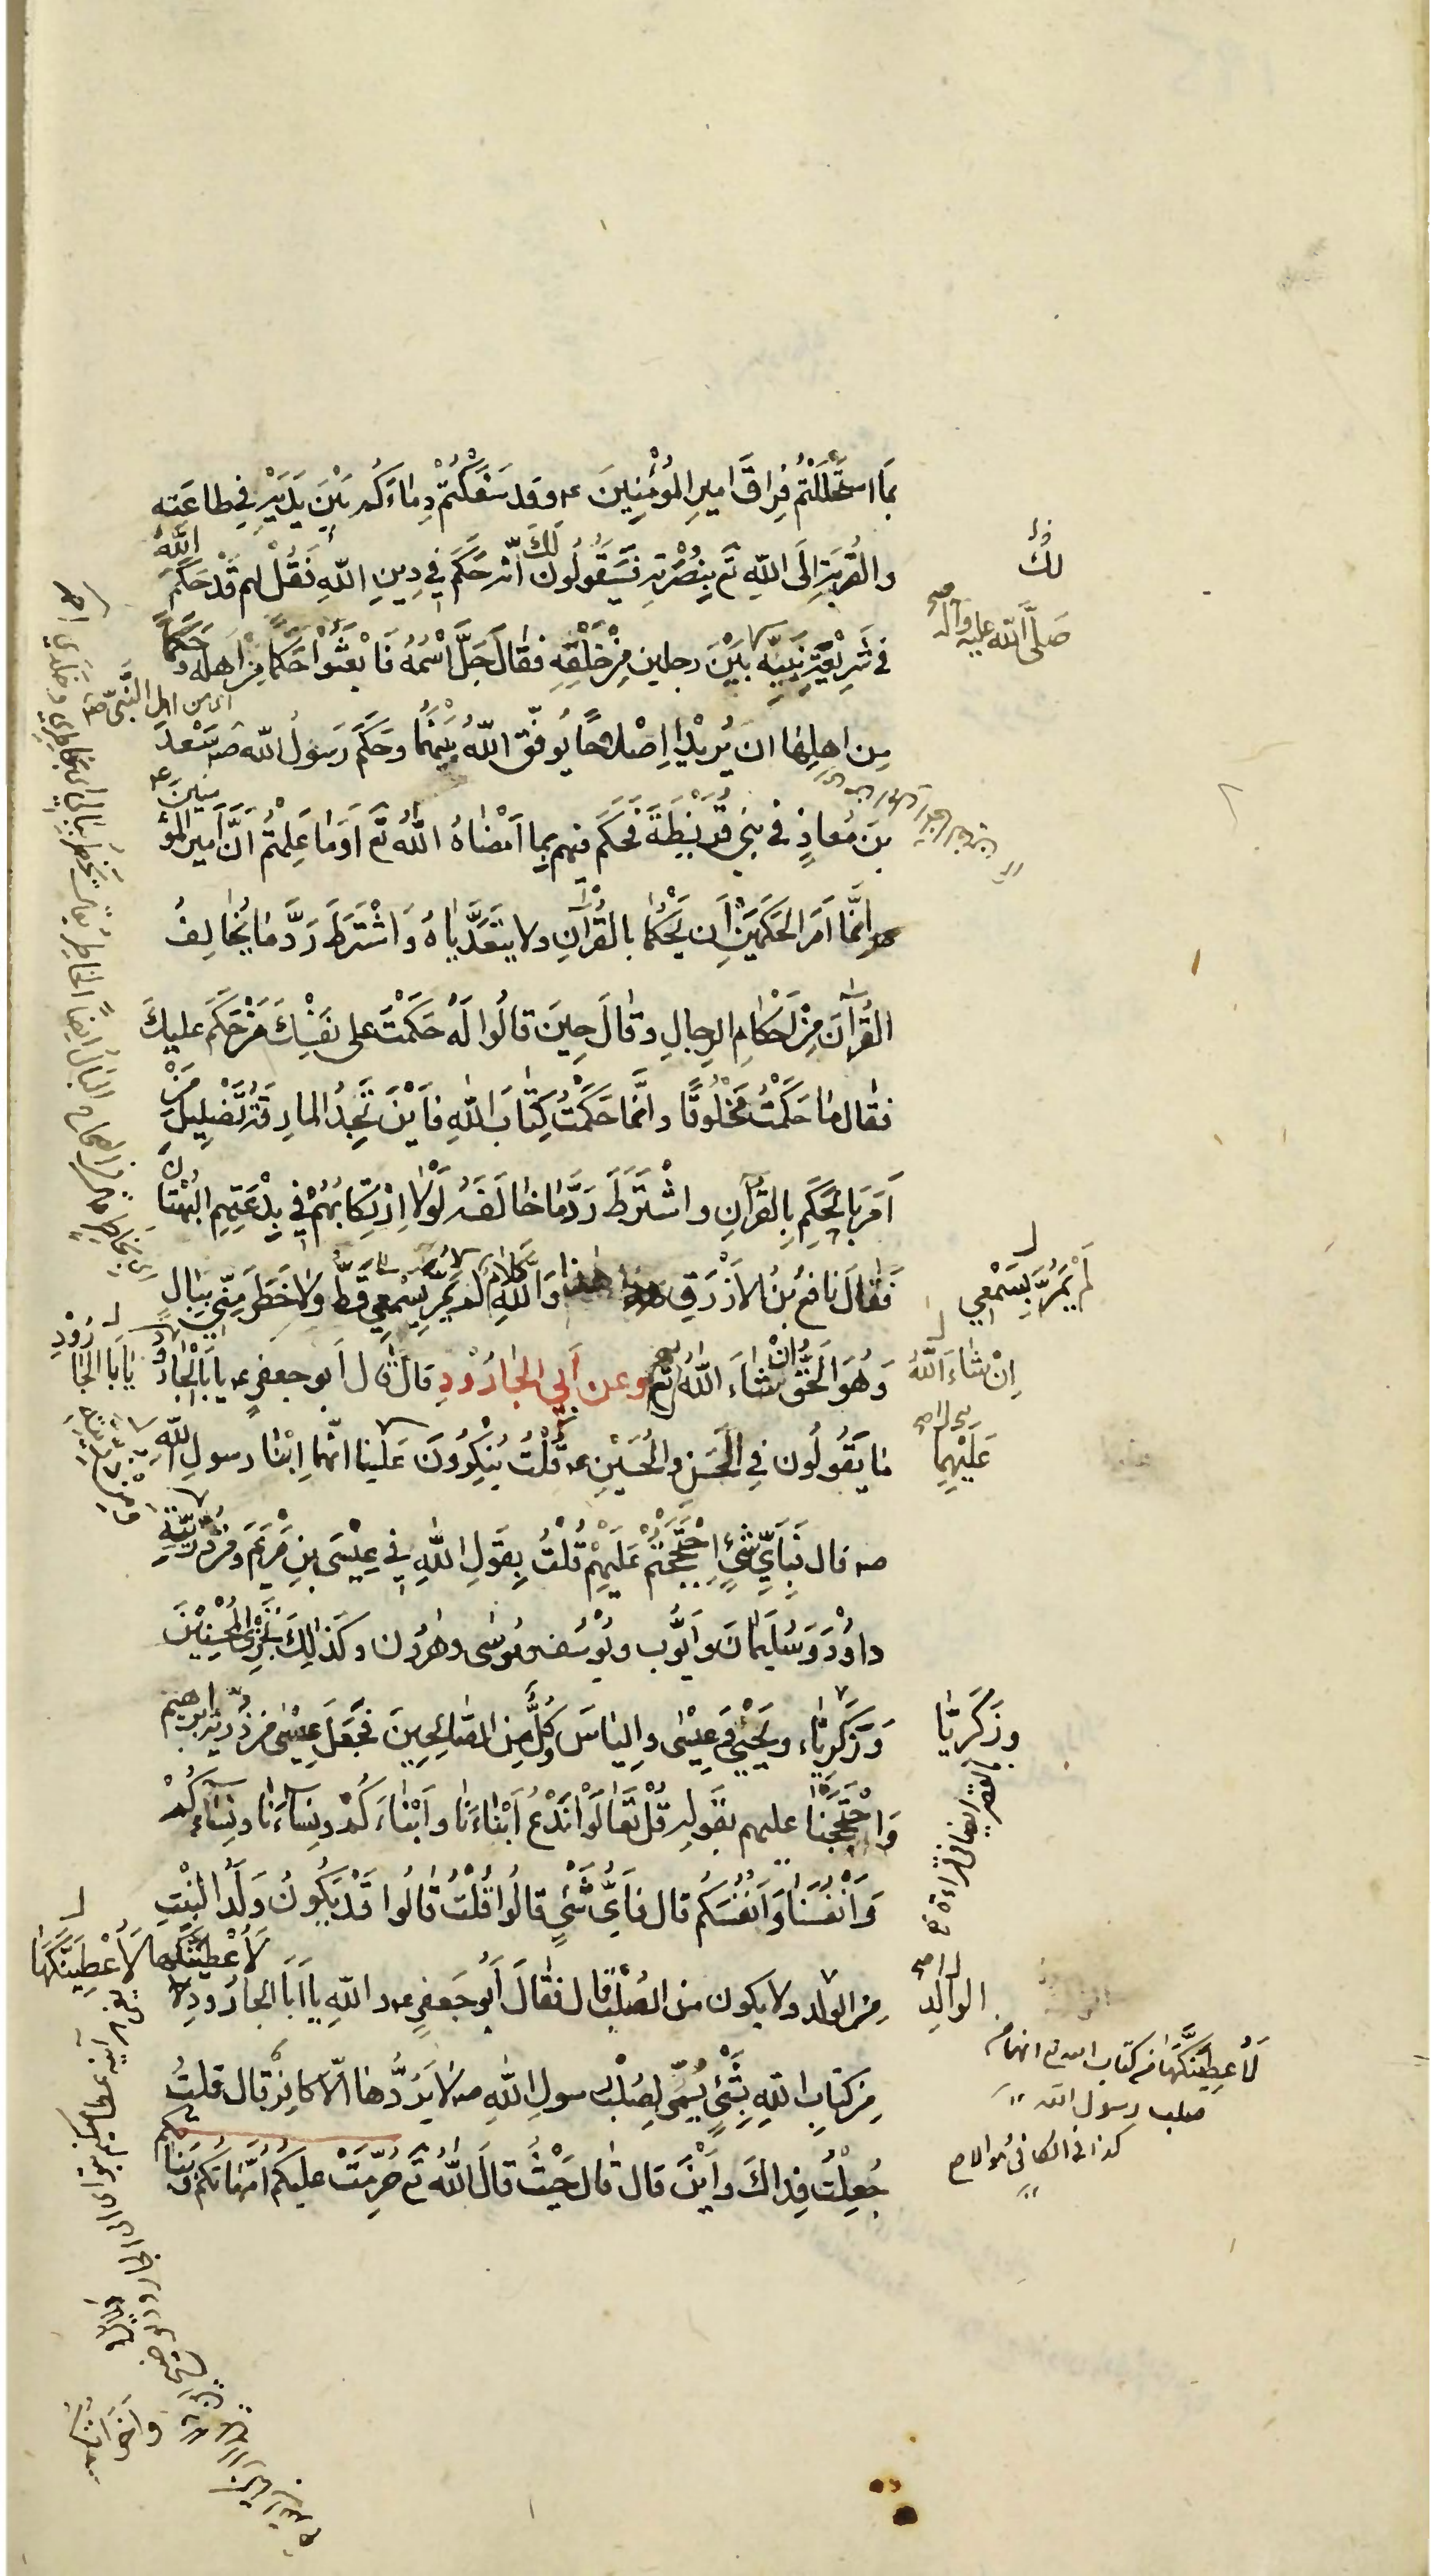 بِمَا اسْتَحْلَلْتُمْ فِرَاقَ اَمِيرِ الْمُؤْمِنِينَ ع وقَد سَفَكْتُمْ دِمَاءَكُم بَيْنَ يَدَيْهِ فِي طاعَتِه
والقُرْبَةِ اِلَى اللهِ تَع بِنُصْرَتِهِ فَسَيَقُولُونَ لَكَ اَنَّه حَكَّمَ فِي دِينِ اللهِ فَقُلْ لهم قَدْ حَكَّمَ اللهُ
لك
فى شَرِيْعَةِ نَبِيِّه بَيْنَ رجلين مِنْ خَلْقِهِ فقالَ جَلَّ اسْمُهُ فَابْعَثُوا حَكَمًا مِنْ اَهْلِه وَحَكَمًا
صَلَّى اللهُ عليه وآله
مِن اهلِهَا ان يُرِيْدَا اِصْلاحًا يُوَفِّقِ اللهُ بَيْنَهُمَا وحَكَّمَ رَسُولُ الله ص سَعْدَ
بنَ مُعاذٍ فى بَنِي قُرَيْظَةَ فَحَكَمَ فيهم بِمَا اَمْضَاهُ اللهُ تَع اَوَمَا عَلِمْتُمْ اَنَّ اَمِيرَ الْمُؤْمِنِينَ ع
اِنَّمَا اَمَرَ الْحَكَمَيْنِ اَن يَحْكُمَا بِالْقُرْآنِ ولا يَتَعَدَّيَاهُ وَاشْتَرَطَ رَدَّ مَا يُخَالِفُ
القُرْآنَ مِنْ اَحْكَامِ الرِجالِ وقَالَ حِينَ قالُوا لَهُ حَكَّمْتَ على نَفْسِكَ مَنْ حَكَمَ عليكَ
فقال مَا حَكَّمْتُ مَخْلُوقًا وانَّمَا حَكَّمْتُ كِتَابَ اللهِ فَاَيْنَ تَجِدُ المارِقَةُ تَضْلِيلَ مَنْ
اَمَرَ بِالْحُكْمِ بِالْقُرآنِ واشْتَرَطَ رَدَّ مَا خَالَفَهُ لَوْلَا ارْتِكَابُهُمْ فِي بِدْعَتِهِمِ الْبُهْتَانَ
فَقَالَ نَافعُ بنُ الاَزْرَقِ هذا وَاللهِ كَلَامٌ لم يَمُرَّ بِسَمْعِي قَطُّ وَلَا خَطَرَ مِنِّي بِبَالٍ
لَمْ يَمُرَّ بِسَمْعِي
وَهُوَ الْحَقُّ اِنْ شَاءَ اللهُ تَع وعن اَبِي الْجَارُوْدِ قالَ قَالَ اَبو جعفرٍ ع يا اَبَا الْجَارُودِ
اِنْ شَاءَ اللهُ
يَا اَبَا الجَارُوْدِ
مَا يَقُولُون فِي الْحَسَنِ والْحُسَيْنِ ع قُلْتُ يُنْكِرُونَ عَلَينا انَّهُمَا ابْنَا رسولِ اللهِ
عَلَيْهِمَا
ص قال فَبِاَيِّ شَيْءٍ احْتَجَجْتُمْ عَلَيْهِمْ قُلْتُ بِقَولِ اللهِ فِي عِيْسَى بنِ مَرْيَمَ وَمِنْ ذُرِّيَّتِهِ
داوُدَ وَسُلَيْمَانَ وَاَيُّوبَ ويُوْسُفَ ومُوسَى وهَرُونَ وكَذَلِكَ نَجْزِي الْمُحْسِنِيْنَ
وَزَكَرِيَّاء ويَحْيى وَعِيْسَى وَالياسَ كُلٌّ مِنَ الصَّالِحِينَ فَجَعَلَ عِيْسَى مِنْ ذُرِّيَّةِ ابرهيم
وزَكَرِيَّا
وَاحْتَجَجْنَا عليهم بقَولِه قُلْ تَعَالَوْا نَدْعُ اَبْنَاءَنَا وَابْنَاءَكُمْ ونِسَاءَنَا ونِسَاءَكُمْ
وَاَنْفُسَنَا وَاَنْفُسَكُم قال فَاَيَّ شَيْءٍ قالُوا قُلْتُ قَالُوا قَدْ يَكُونُ وَلَدُ الْبِنْتِ
مِنَ الولد ولا يكون من الصُلْبِ قال فقَالَ اَبُو جَعفرٍ ع واللهِ يا اَبَا الْجَارُودِ
الوَالِدِ
لَاُعْطِيَنَّكَهَا لَاُعْطِيَنَّكَهَا
مِنْ كِتَابِ اللهِ بِشَيْءٍ يُسَمّى لِصُلْبِ رسولِ اللهِ ص لَا يَرُدُّهَا اِلّا كافِرٌ قال قلتُ
لَاُعطِيَنَّكَهَا مِنْ كتاب الله تع انهما من
صلب رسول الله
كذا فى الكافى
جُعِلْتُ فِدَاكَ وَاَيْنَ قال قالَ حَيْثُ قالَ اللهُ تَع حُرِّمَتْ عليكُم اُمَّهَاتُكُمْ وَبَنَاتُكُم